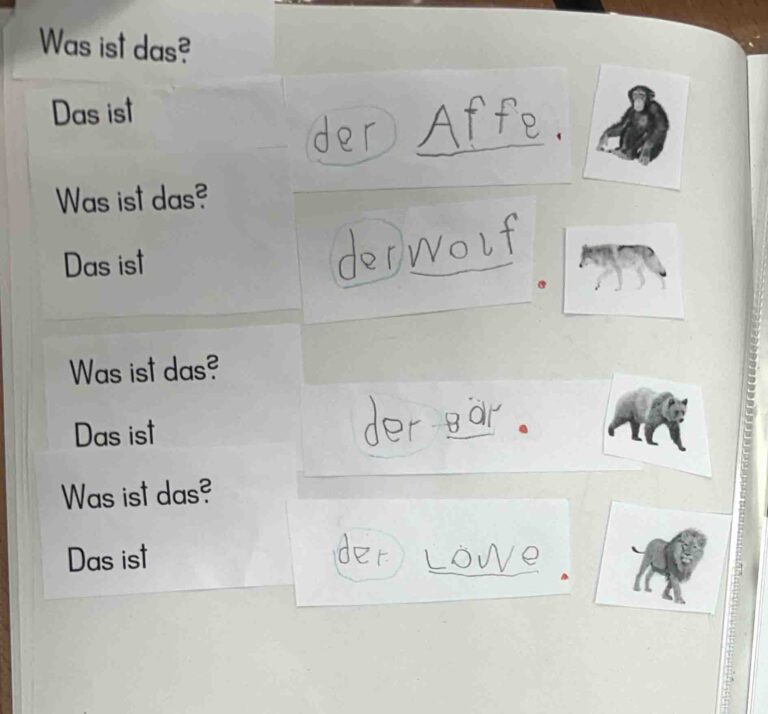 Was ist das?
Das ist der Affe.
Was ist das?
Das ist der Wolf.
Was ist das?
Das ist der Bär.
Was ist das?
Das ist der Löwe.